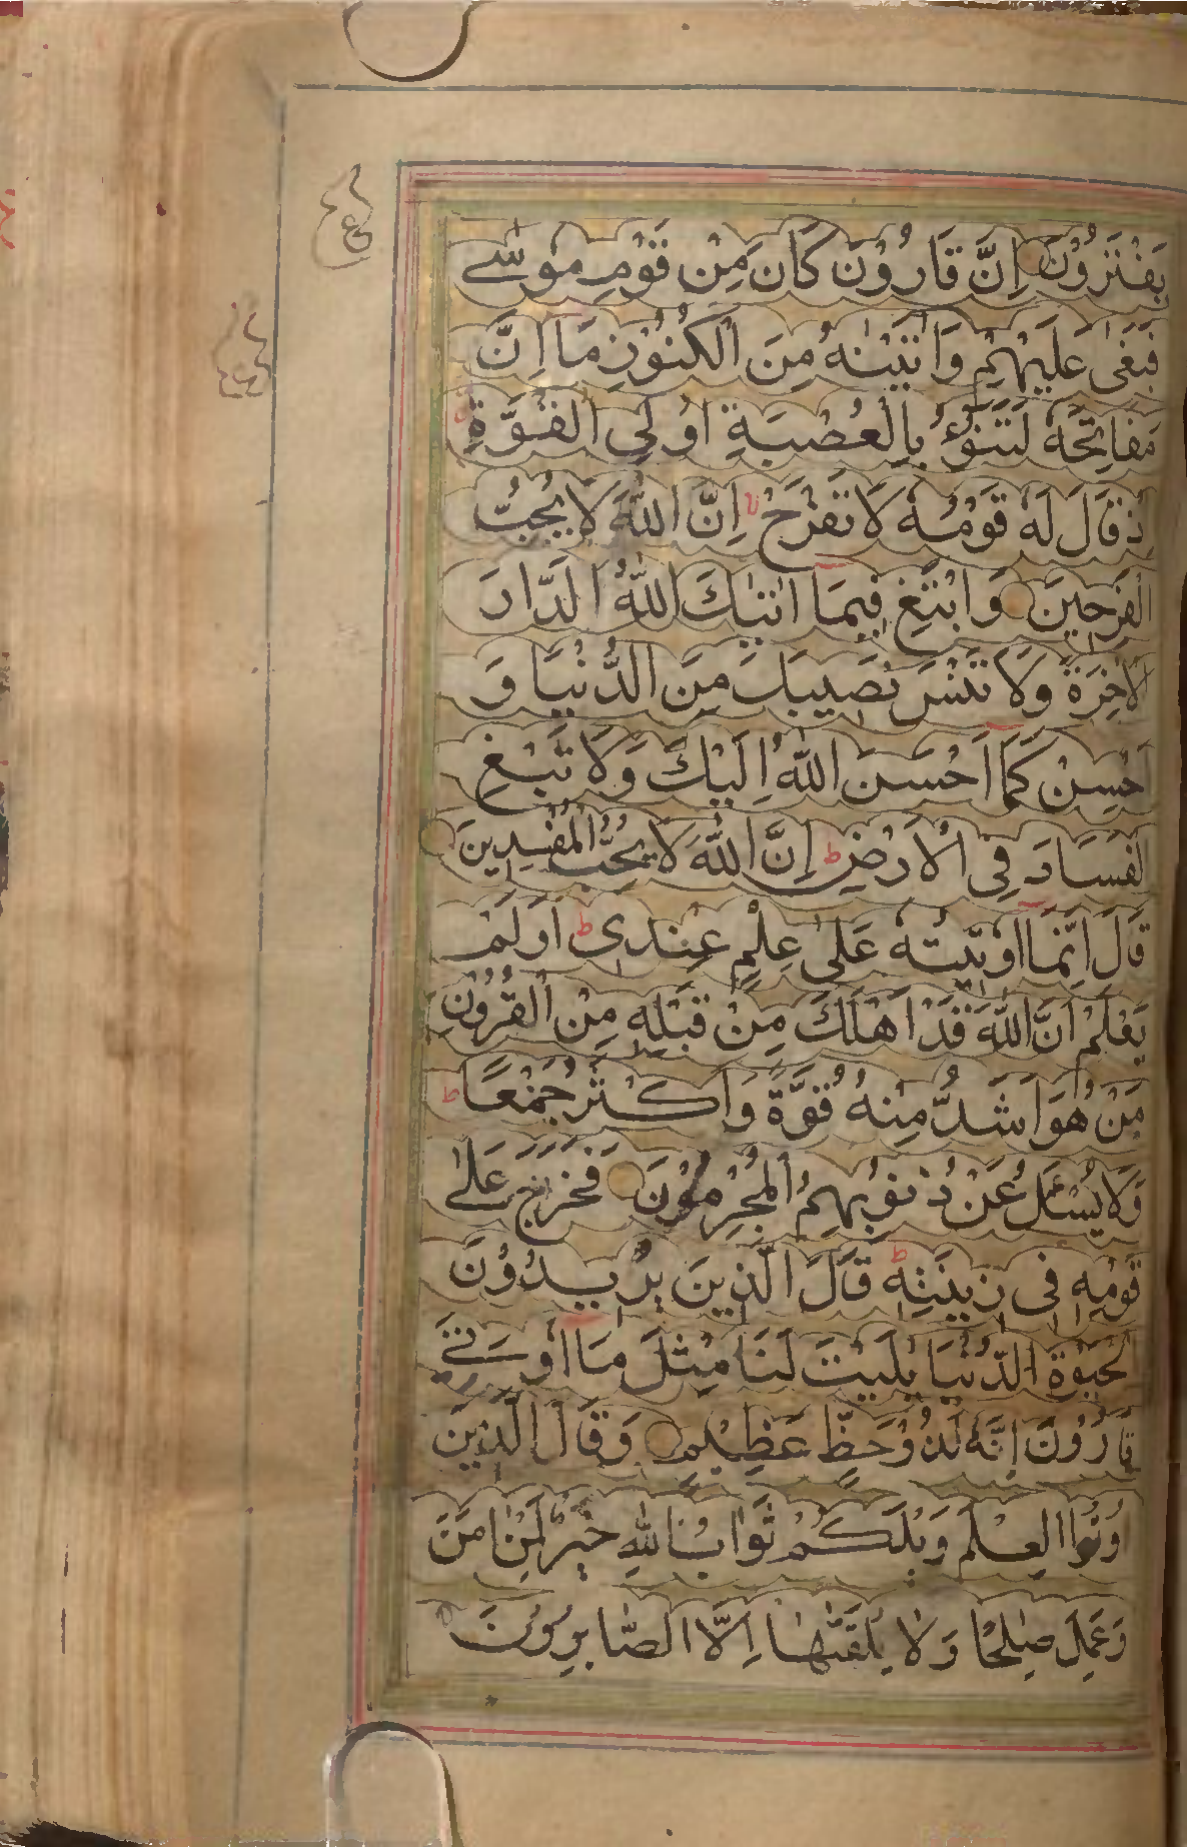 يَفْتَرُوْنَ اِنَّ قَارُوْنَ كَانَ مِنْ قَوْمِ مُوْسٰے
فَبَغٰى عَلَيْهِمْ وَاٰتَيْنٰهُ مِنَ الْكُنُوْزِ مَا اِنَّ
مَفَاتِحَهٗ لَتَنُوْٓءُ بِالْعُصْبَةِ اُولِي الْقُوَّةِ
ذْ قَالَ لَهٗ قَوْمُهٗ لَا تَفْرَحْ اِنَّ اللّٰهَ لَا يُحِبُّ
الْفَرِحِيْنَ وَابْتَغِ فِيْمَا اٰتٰىكَ اللّٰهُ الدَّارَ
الْاٰخِرَةَ وَلَا تَنْسَ نَصِيْبَكَ مِنَ الدُّنْيَا وَ
اَحْسِنْ كَمَا اَحْسَنَ اللّٰهُ اِلَيْكَ وَلَا تَبْغِ
الْفَسَادَ فِى الْاَرْضِ ط اِنَّ اللّٰهَ لَا يُحِبُّ الْمُفْسِدِيْنَ
قَالَ اِنَّمَا اُوْتِيْتُهٗ عَلٰى عِلْمٍ عِنْدِىْ ط اَوَلَمْ
يَعْلَمْ اَنَّ اللّٰهَ قَدْ اَهْلَكَ مِنْ قَبْلِهٖ مِنَ الْقُرُوْنِ
مَنْ هُوَ اَشَدُّ مِنْهُ قُوَّةً وَاَكْثَرُ جَمْعًا ط
وَلَا يُسْئَلُ عَنْ ذُنُوْبِهِمُ الْمُجْرِمُوْنَ فَخَرَجَ عَلٰے
قَوْمِهٖ فِى زِيْنَتِهٖ ط قَالَ الَّذِيْنَ يُرِيْدُوْنَ
الْحَيٰوةَ الدُّنْيَا يٰلَيْتَ لَنَا مِثْلَ مَا اُوْتِےَ
قَارُوْنُ اِنَّهٗ لَذُوْ حَظٍّ عَظِيْمٍ وَقَالَ الَّذِيْنَ
وْتُوا الْعِلْمَ وَيْلَكُمْ ثَوَابُ اللّٰهِ خَيْرٌ لِّمَنْ اٰمَنَ
وَعَمِلَ صٰلِحًا وَلَا يُلَقّٰىهَا اِلَّا الصّٰابِرُوْنَ